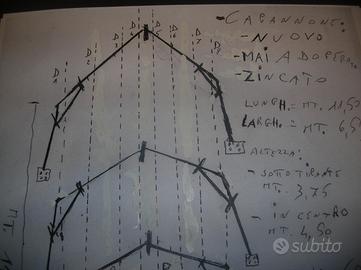 - CAPANNONE:
- NUOVO
- MAI ADOPERATO
- ZINCATO
LUNGH. = MT. 11,50
LARGH. = MT. 6,5
ALTEZZA:
- SOTTO TIRANTE
MT. 3,75
- IN CENTRO
MT. 4,50
D1
D2
D3
MT. 1
subito